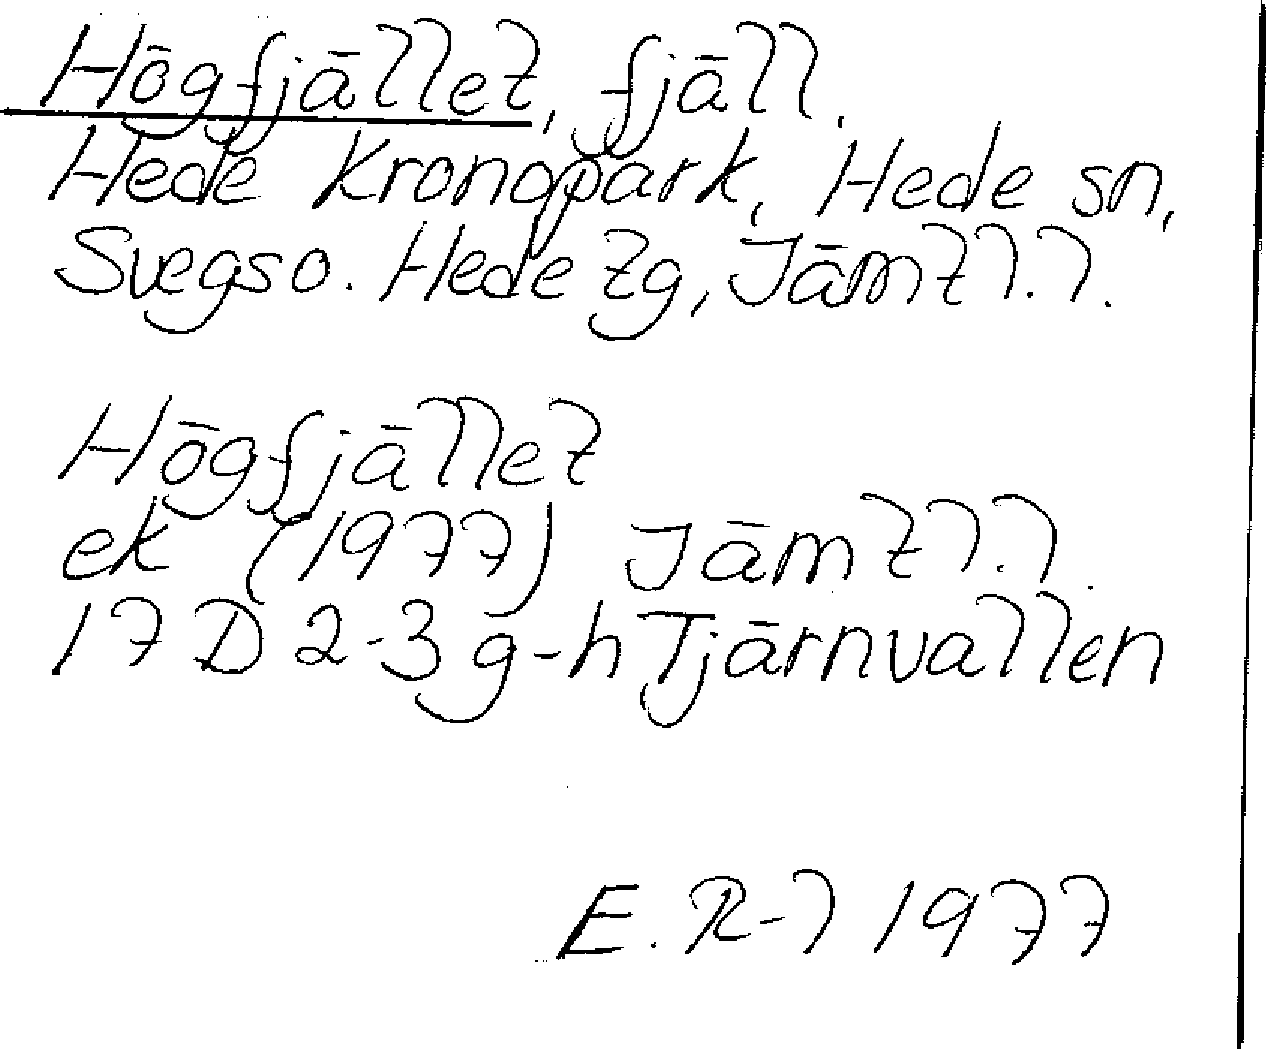 Högfjället, fjäll.
Hede Kronopark, Hede sn,
Svegs o. Hede tg, Jämtl.l.
Högfjället
ek (1977) Jämtl.l.
17 D 2-3 g-h Tjärnvallen
E. R-l 1977